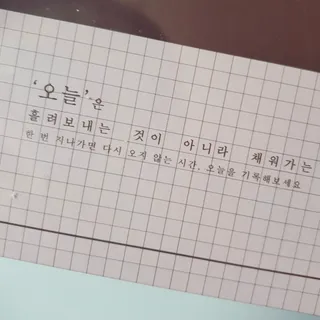 ‘오늘’은
흘려보내는 것이 아니라 채워가는
한 번 지나가면 다시 오지 않는 시간, 오늘을 기록해보세요